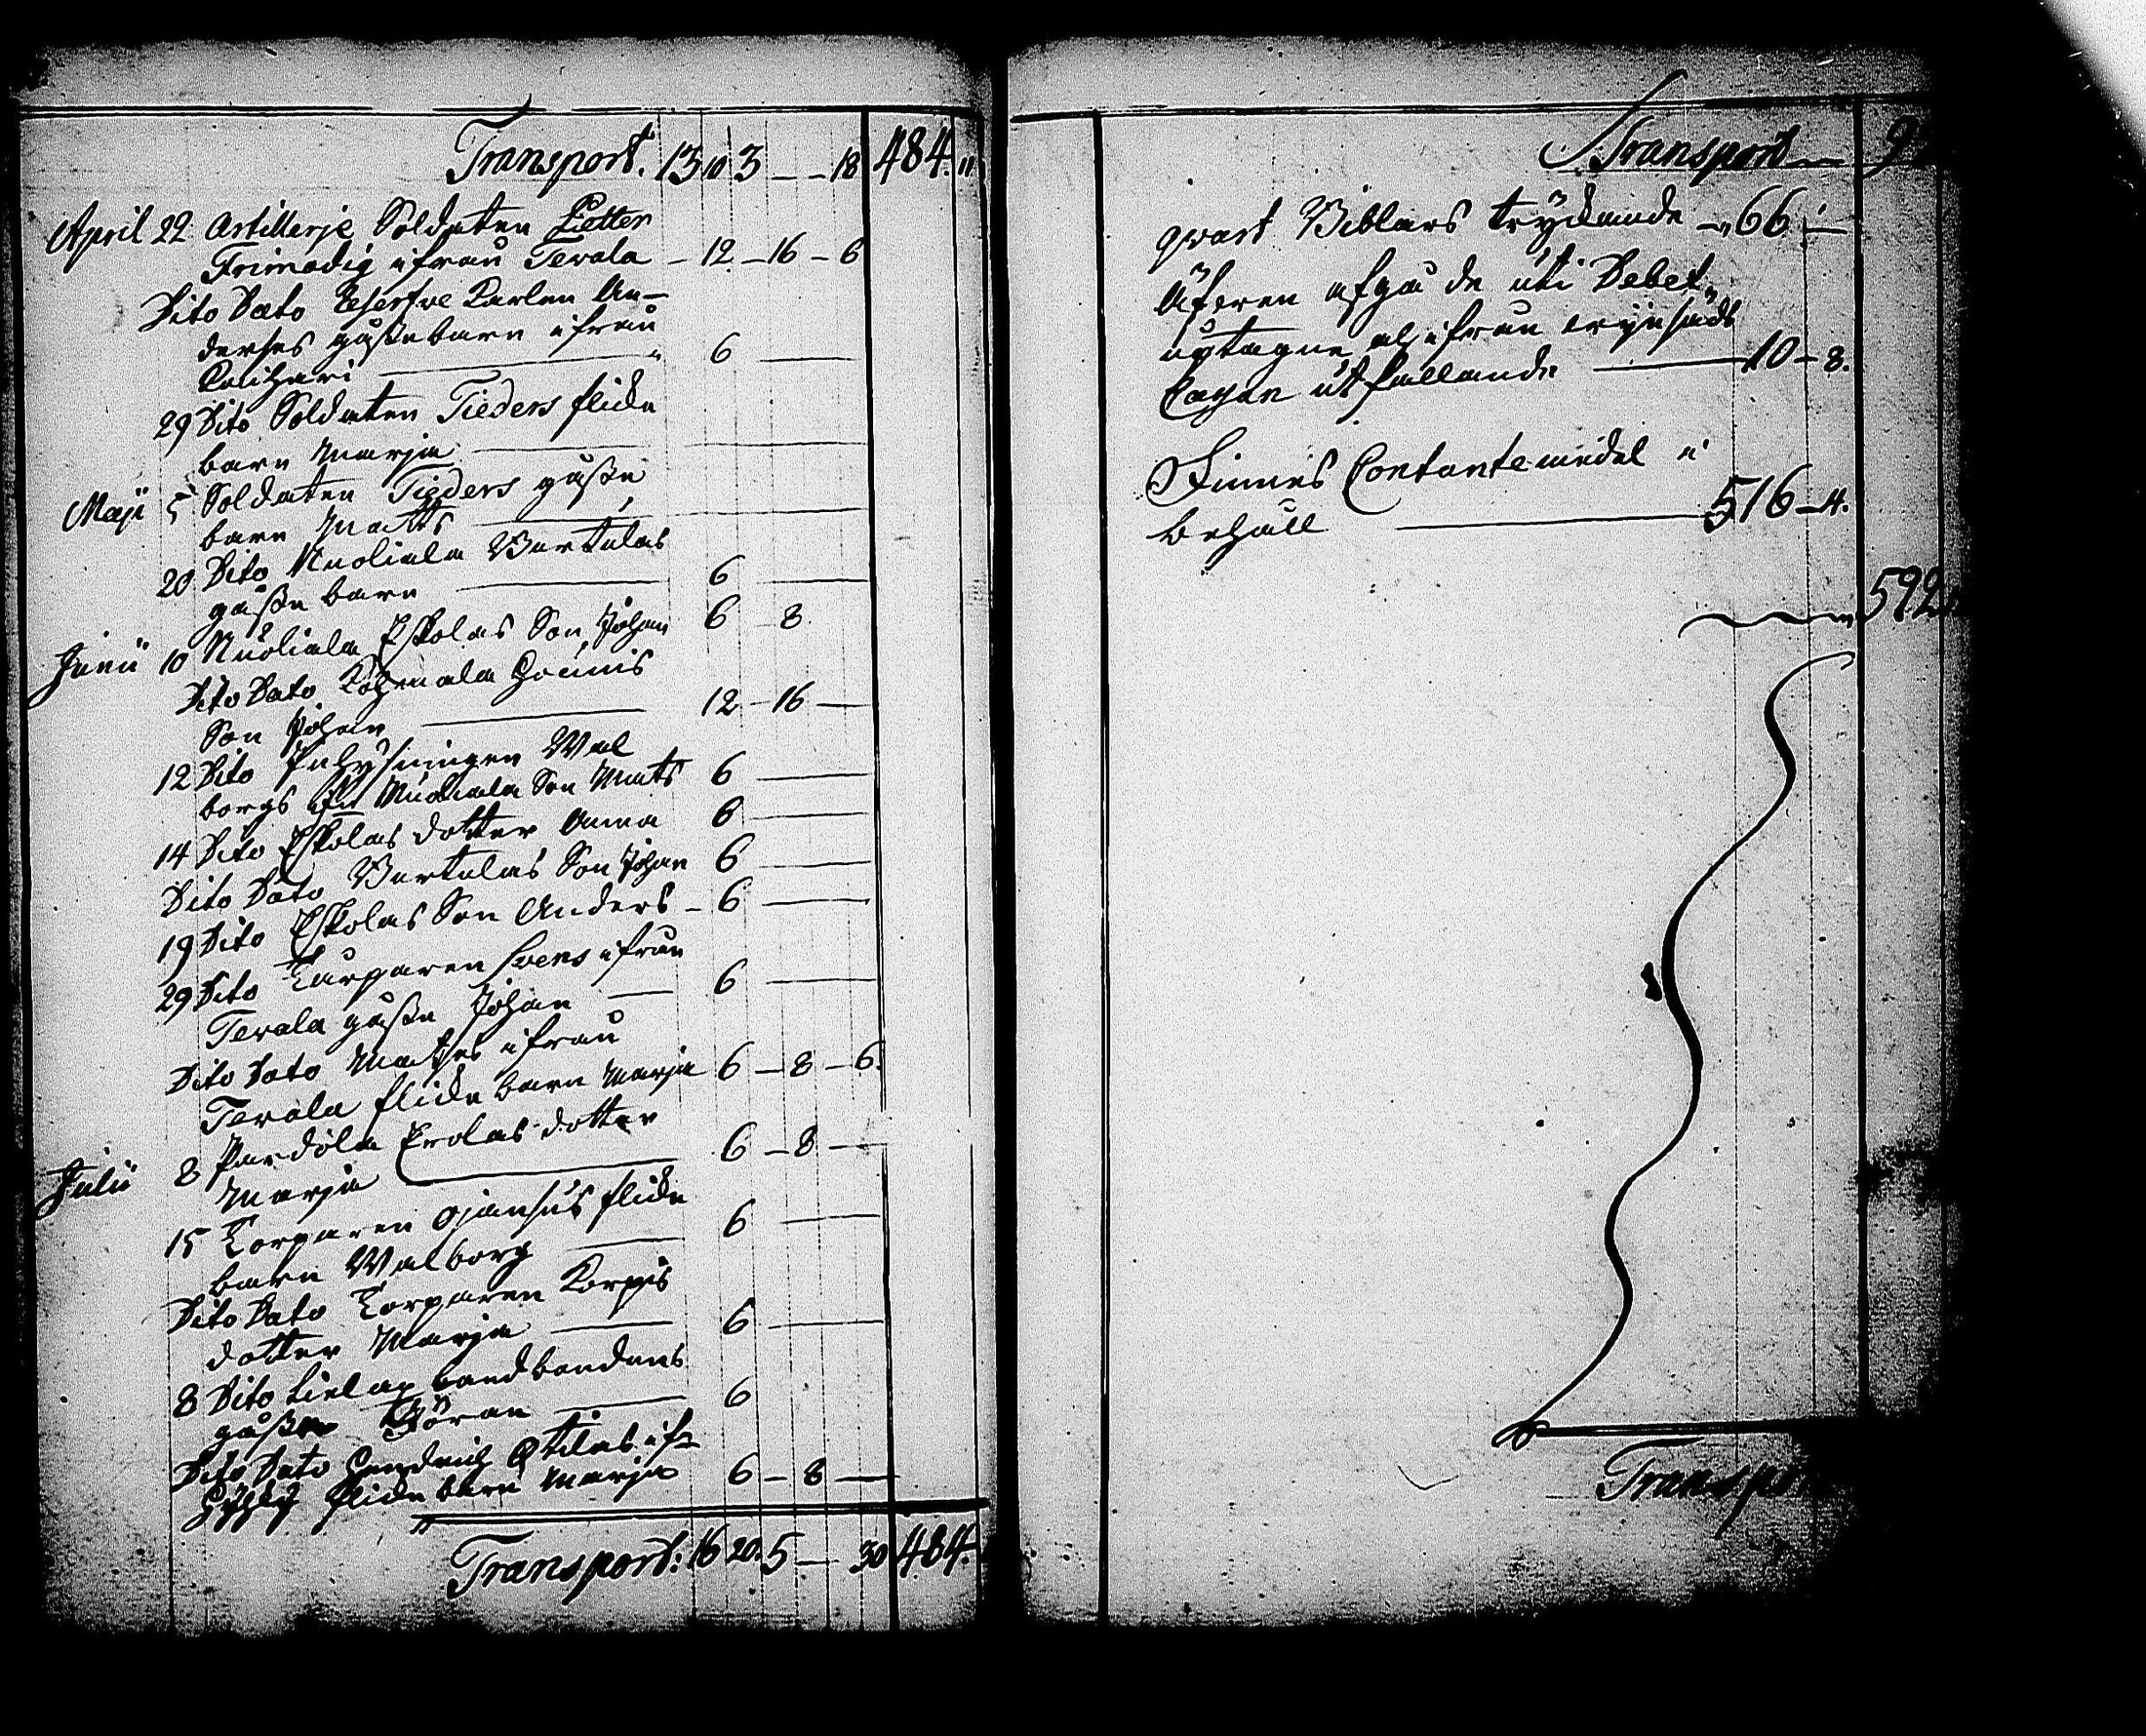 Transport. 13 10 3 — — 18 484. "
April 22 Artillerje Soldaten Petter
Frimodig ifrån Terola — 12. — 16 — 6
Dito Dato Reserfve Karlen An-
derses gåssebarn ifrån
6 —
29 Dito Soldaten Tieders flicke
barn Marja —
Maji 5 Soldaten Tieders gåsse
barn Matts —
20 Dito Nuoliala Bertulas
gåsse barn — 6 —
Junii 10 Nuoliala Eskolas Son Johan 6 — 8.
Dito Dato
Son Johan — 12 — 16 —
12 Dito Inhysningen Wal
borgs ifr Nuoliala Son Mats 6 —
14 Dito Eskolas dotter Anna 6 —
Dito Dato Bertulas Son Johan 6 —
19 Dito Eskolas Son Anders — 6 —
29 Dito Torparen Svens ifrån
Terola gåsse Johan — 6 —
Dito Dato Mattses ifrån
Terola flicke barn Marja 6 — 8 — 6.
Julii 8 Erolas dotter
Marja — 6 — 8 —
15 Torparen Ojanhus flicke
barn Walborg — 6 —
Dito Dato Torparen Korpis
dotter Marja — 6 —
8 Dito Lielax landbondens
gåsse Göran — 6
Dito Dato Hendrich Ottilas if
flicke barn Marja 6 — 8 —
Transport: 16 20. 5 — 30 484.
Transport —
qvart Biblars tryckande — 66 —
Äfven afgå de uti Debet
uptagne, ifrån
Cassan utfallande — 10 — 8.
Finnes Contante medel i
behåll — 516 — 4.
592
Transpor